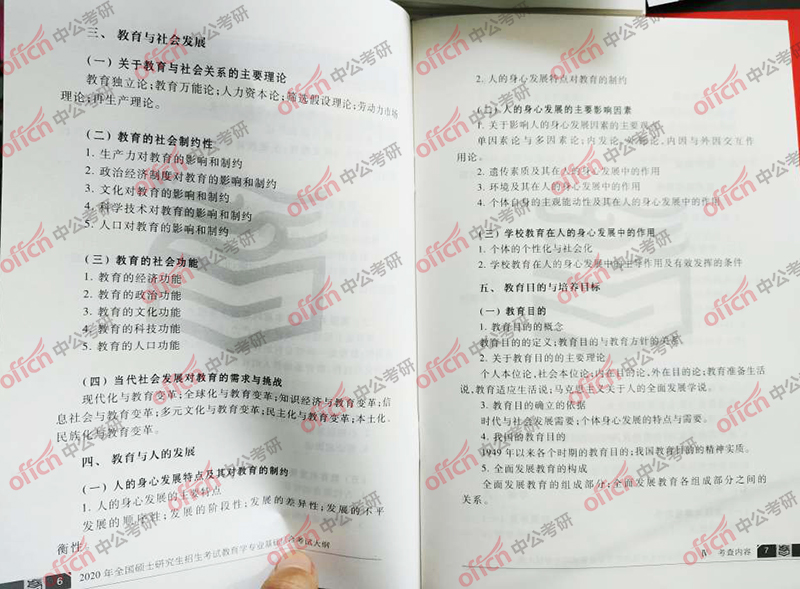 三、教育与社会发展
(一)关于教育与社会关系的主要理论
教育独立论;教育万能论;人力资本论;筛选假设理论;劳动力市场
理论;再生产理论。
(二)教育的社会制约性
1. 生产力对教育的影响和制约
2. 政治经济制度对教育的影响和制约
3. 文化对教育的影响和制约
4. 科学技术对教育的影响和制约
5. 人口对教育的影响和制约
(三)教育的社会功能
1. 教育的经济功能
2. 教育的政治功能
3. 教育的文化功能
4. 教育的科技功能
5. 教育的人口功能
(四)当代社会发展对教育的需求与挑战
现代化与教育变革;全球化与教育变革;知识经济与教育变革;信
息社会与教育变革;多元文化与教育变革;民主化与教育变革;本土化、
民族化与教育变革。
四、教育与人的发展
(一)人的身心发展特点及其对教育的制约
1. 人的身心发展的主要特点
发展的顺序性;发展的阶段性;发展的差异性;发展的不平
衡性
6 2020年全国硕士研究生招生考试教育学专业基础 考试大纲
2. 人的身心发展特点对教育的制约
(二)人的身心发展的主要影响因素
1. 关于影响人的身心发展因素的主要观
单因素论与多因素论;内发论、外 论,内因与外因交互作
用论。
2. 遗传素质及其在人的身心发展中的作用
3. 环境及其在人的身心发展中的作用
4. 个体自身的主观能动性及其在人的身心发展中的作用
(三)学校教育在人的身心发展中的作用
1. 个体的个性化与社会化
2. 学校教育在人的身心发展中的主导作用及有效发挥的条件
五、教育目的与培养目标
(一)教育目的
1. 教育目的的概念
教育目的的定义;教育目的与教育方针的关系。
2. 关于教育目的的主要理论
个人本位论,社会本位论;内在目的论,外在目的论;教育准备生活
说,教育适应生活说;马克思主义关于人的全面发展学说。
3. 教育目的确立的依据
时代与社会发展需要;个体身心发展的特点与需要。
4. 我国的教育目的
1949年以来各个时期的教育目的;我国教育目的的精神实质。
5. 全面发展教育的构成
全面发展教育的组成部分;全面发展教育各组成部分之间的
关系。
Ⅳ 考查内容 7
offcn 中公考研